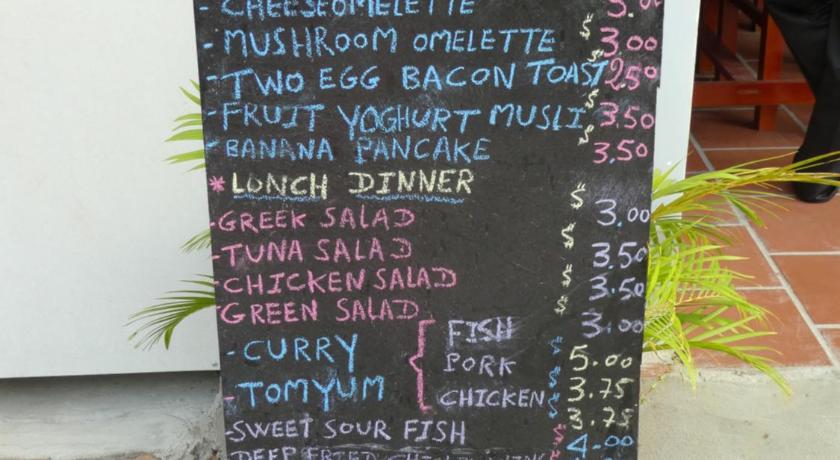 - CHEESE OMELETTE 3.00
- MUSHROOM OMELETTE $ 3.00
- TWO EGG BACON TOAST $ 2.50
- FRUIT YOGHURT MUSLI $ 3.50
- BANANA PANCAKE $ 3.50
* LONCH DINNER
- GREEK SALAD $ 3.00
- TUNA SALAD $ 3.50
- CHICKEN SALAD $ 3.50
- GREEN SALAD $ 3.00
- CURRY { FISH $ 5.00
- TOMYUM PORK $ 3.75
CHICKEN $ 3.75
- SWEET SOUR FISH $ 4.00
DEEP FRIED